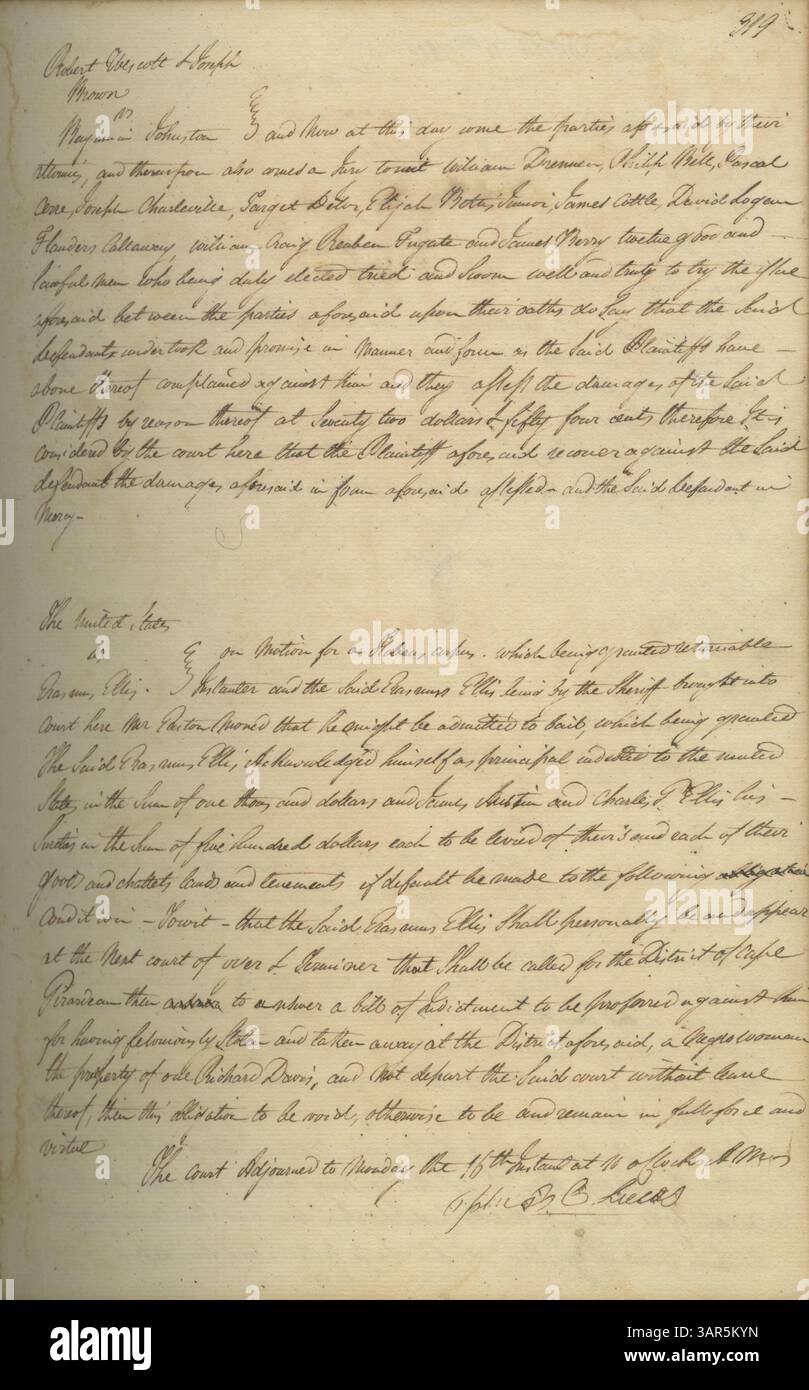 389
Robert Wescott & Joseph
Brown
vs
Benjamin Johnston } and Now at this day come the parties afores'd by their
attornies, and thereupon also comes a Jury to wit William Drennen, Philip Bell, Pascal
Cerre, Joseph Charleville, Elijah Bates, James Cottle, David Logan
Flanders Callaway, William Craig Reuben Fugate and James Berry twelve good and
lawful men who being duly elected tried and Sworn well and truly to try the issue
aforesaid between the parties aforesaid upon their oaths do Say that the Said
defendants undertook and promise in Manner and form as the Said Plaintiffs have
above thereof complained against him and they assess the damages of the Said
Plaintiffs by reason thereof at Seventy two dollars & fifty four cents therefore It is
considered by the court here that the Plaintiff aforesaid recover against the Said
defendant the damages aforesaid in form aforesaid assessed and the Said defendant in
Mercy-
The United States
vs } on Motion for a Habeas corpus. which being granted returnable
Erasmus Ellis. Instanter and the Said Erasmus Ellis being by the Sheriff brought into
court here Mr Easton Moved that he might be admitted to bail, which being granted
The Said Erasmus Ellis, Acknowledged himself as principal indebted to the united
States in the Sum of one thousand dollars and James Austin and Charles Ellis his
Sureties in the Sum of five hundred dollars each to be levied of their's and each of their
goods and chattels lands and tenements if default be made to the following
condition - Towit - that the Said Erasmus Ellis Shall personally be and appear
at the Next court of oyer & Terminer that Shall be called for the District of Cape
Girardeau then to answer a bill of Indictment to be proferred against him
for having feloniously Stolen and taken away at the District aforesaid, a Negro woman
the property of one Richard Davis, and not depart the Said court without leave
thereof, then this obligation to be void, otherwise to be and remain in full force and
virtue
The court Adjourned to Monday the 16th Instant at 10 oclock A M
J. B. C. Lucas
alamy
3AR5KYN